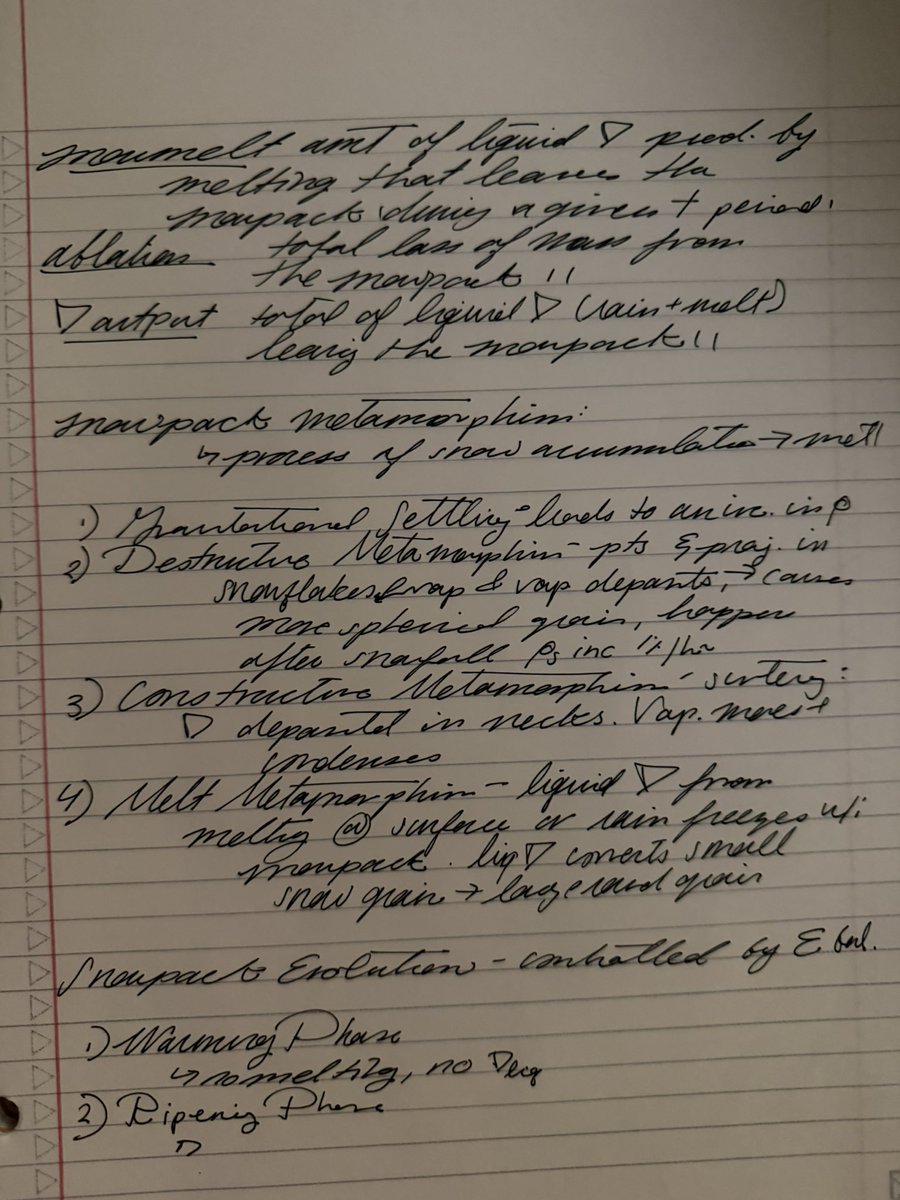 snowmelt amt of liquid ▽ prod. by
melting that leaves the
snowpack during a given t period.
ablation total loss of mass from
the snowpack "
▽ output total of liquid ▽ (rain + melt)
leavig the snowpack "
snowpack metamorphism:
↳ process of snow accumulation → melt
1) Gravitational Settling - leads to an inc. in ρ
2) Destructive Metamorphism - pts & proj. in
snowflakes evap & vap deposits, → causes
more spherical grain, happen
after snowfall ρs inc 1%/hr
3) Constructive Metamorphism - sintery:
▽ deposited in necks. Vap. moves +
condenses
4) Melt Metamorphism - liquid ▽ from
meltig @ surface or rain freezes w/i
snowpack. liq ▽ converts small
snow grain → large round grain
Snowpack Evolution - controlled by E bal.
1) Warming Phase
↳ no meltig, no ▽
2) Ripenig Phase
▽